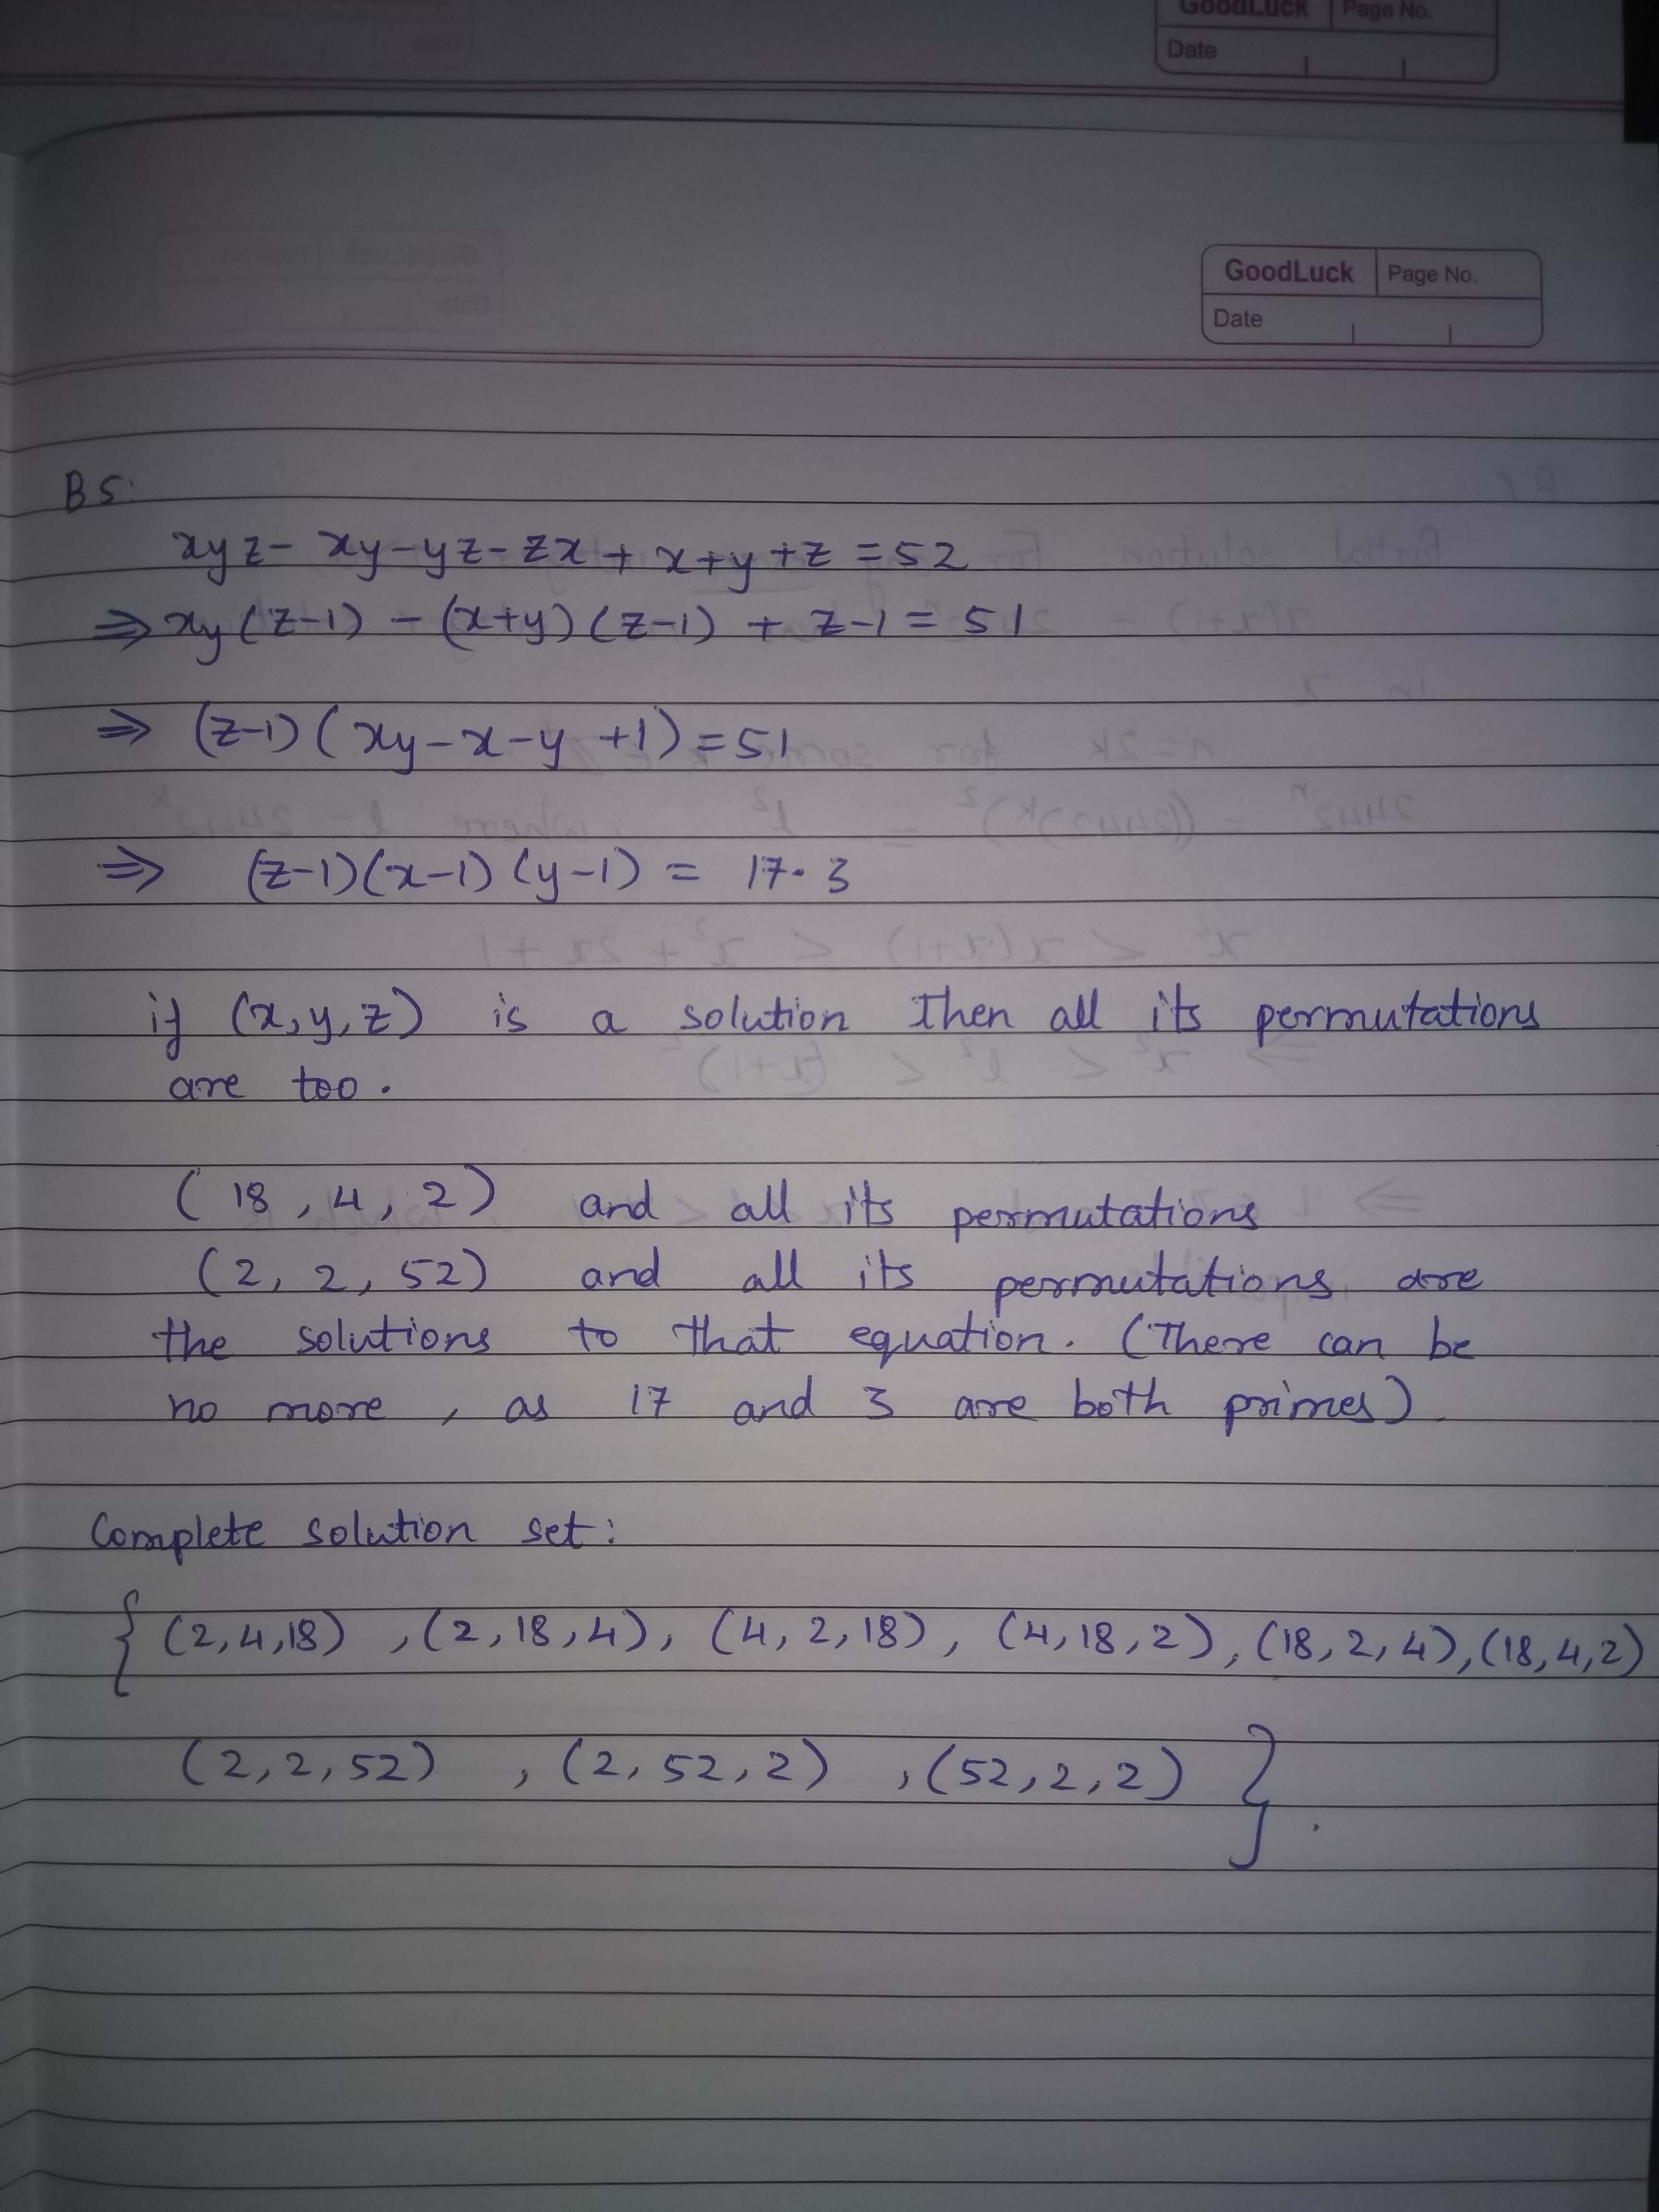 GoodLuck Page No.
Date
GoodLuck Page No.
Date
B5:
xyz - xy - yz - zx + x + y + z = 52
⇒ xy(z-1) - (x+y)(z-1) + z-1 = 51
⇒ (z-1)(xy-x-y+1) = 51
⇒ (z-1)(x-1)(y-1) = 17·3
if (x,y,z) is a solution then all its permutations
are too.
(18, 4, 2) and all its permutations
(2, 2, 52) and all its permutations are
the solutions to that equation. (There can be
no more, as 17 and 3 are both primes).
Complete solution set:
{ (2,4,18), (2,18,4), (4,2,18), (4,18,2), (18,2,4), (18,4,2)
(2,2,52), (2,52,2), (52,2,2) }.